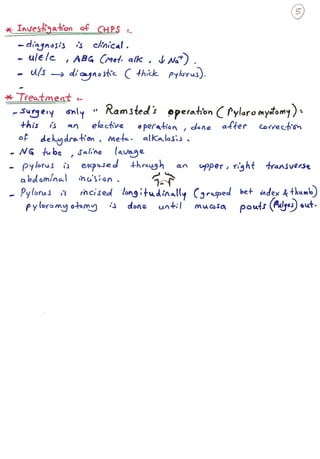 5
* Investigation of CHPS :-
- diagnosis is clinical.
- u/e/c , ABG (Met. alk. ↓ Na⁺).
- u/s → diagnostic ( thick pylorus).
-
* Treatment :-
- surgery only " Ramsted's operation ( Pyloromyotomy) :
this is an elective operation , done after correction
of dehydration , meta- alkalosis .
- NG tube , Saline lavage
- pylorus is exposed through an upper , right transverse
abdominal incision .
- Pylorus is incised longitudinally (grasped bet index & thumb)
pyloromyotomy is done until mucosa pouts (Bulges) out.